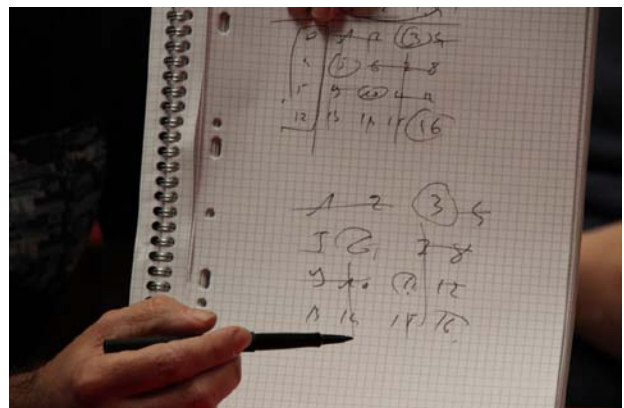 0 1 2 3 4
4 5 6 7 8
5 9 10 11 12
12 13 14 15 16
1 2 3 4
5 6 7 8
9 10 11 12
13 14 15 16